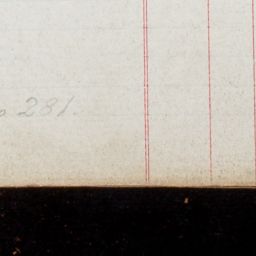 o 231.